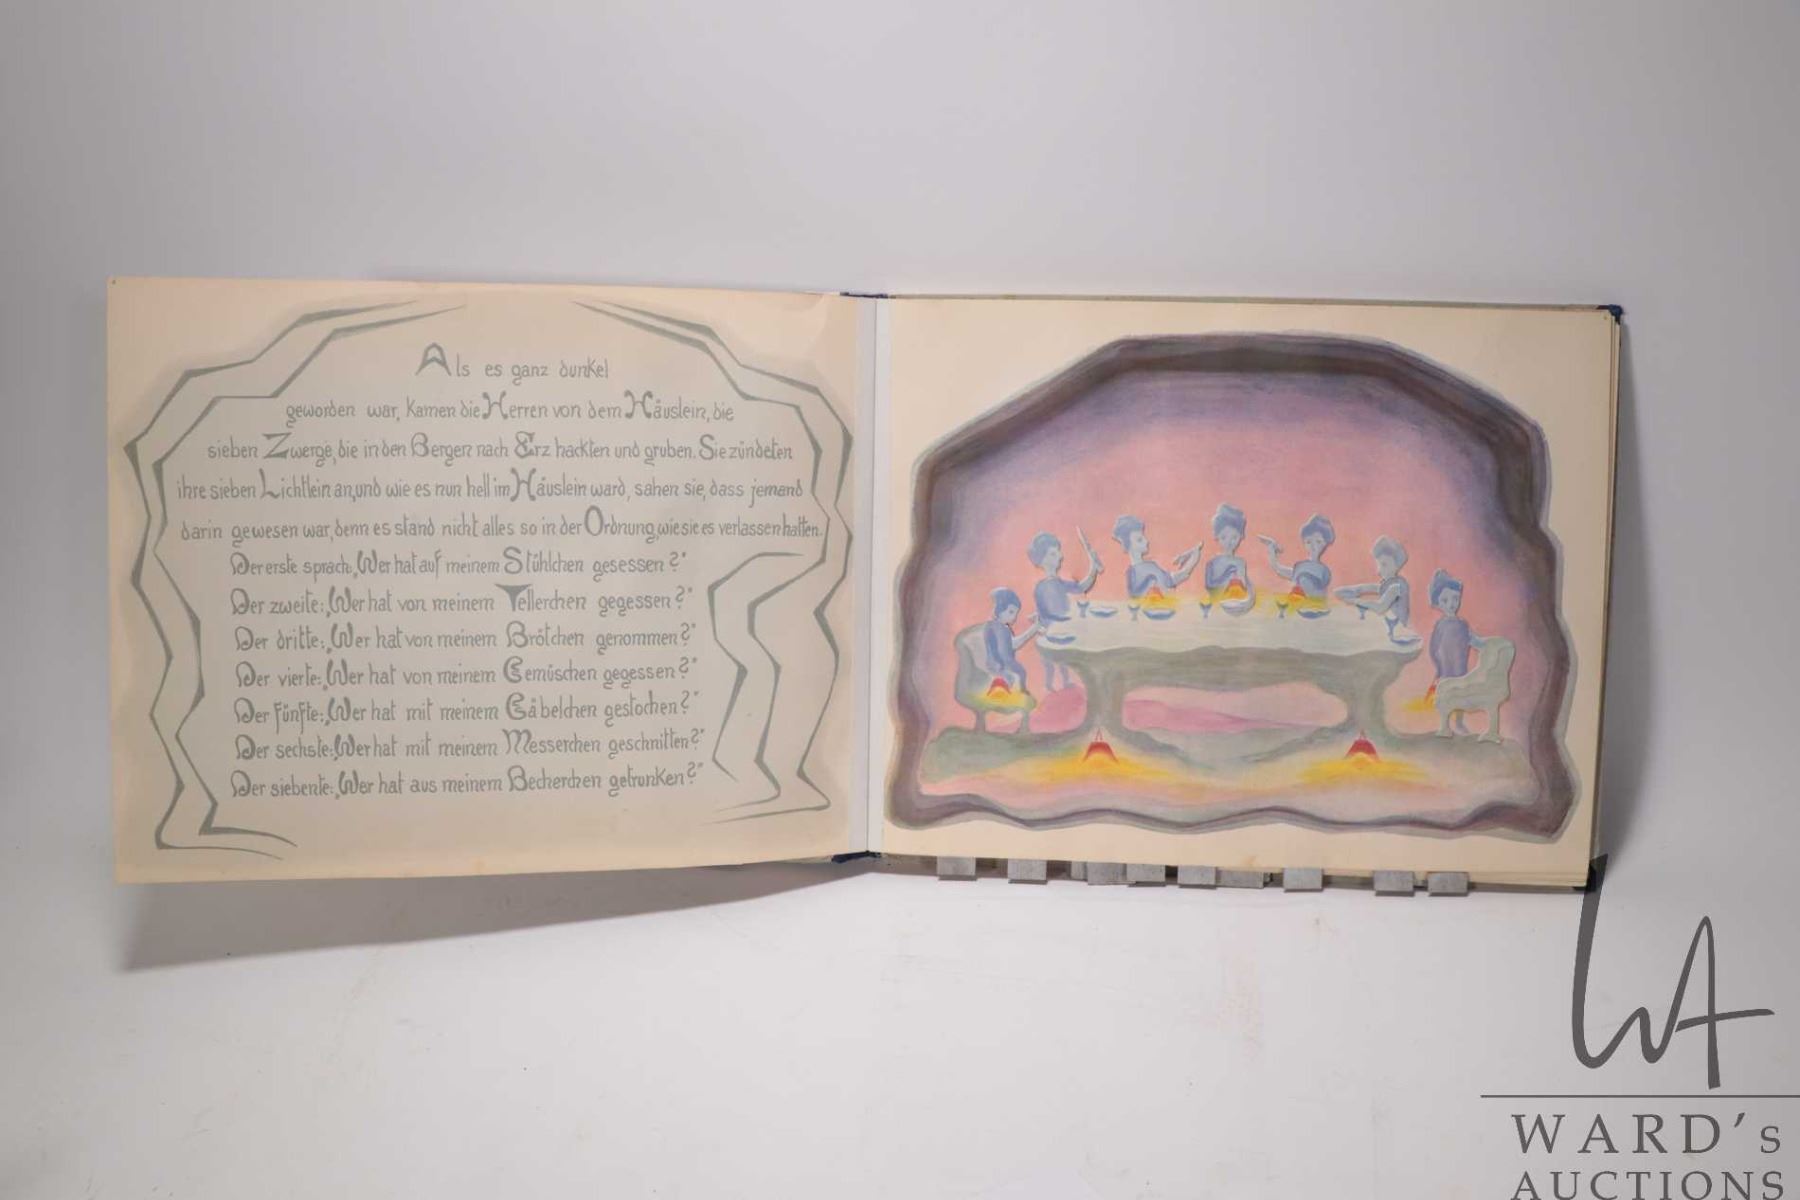 Als es ganz dunkel
geworden war, kamen die Herren von dem Häuslein, die
sieben Zwerge, die in den Bergen nach Erz hackten und gruben. Sie zündeten
ihre sieben Lichtlein an, und wie es nun hell im Häuslein ward, sahen sie, dass jemand
darin gewesen war, denn es stand nicht alles so in der Ordnung, wie sie es verlassen hatten.
Der erste sprach: „Wer hat auf meinem Stühlchen gesessen?"
Der zweite: „Wer hat von meinem Tellerchen gegessen?"
Der dritte: „Wer hat von meinem Brötchen genommen?"
Der vierte: „Wer hat von meinem Gemüschen gegessen?"
Der fünfte: „Wer hat mit meinem Gäbelchen gestochen?"
Der sechste: „Wer hat mit meinem Messerchen geschnitten?"
Der siebente: „Wer hat aus meinem Becherchen getrunken?"
WA
WARD's
AUCTIONS